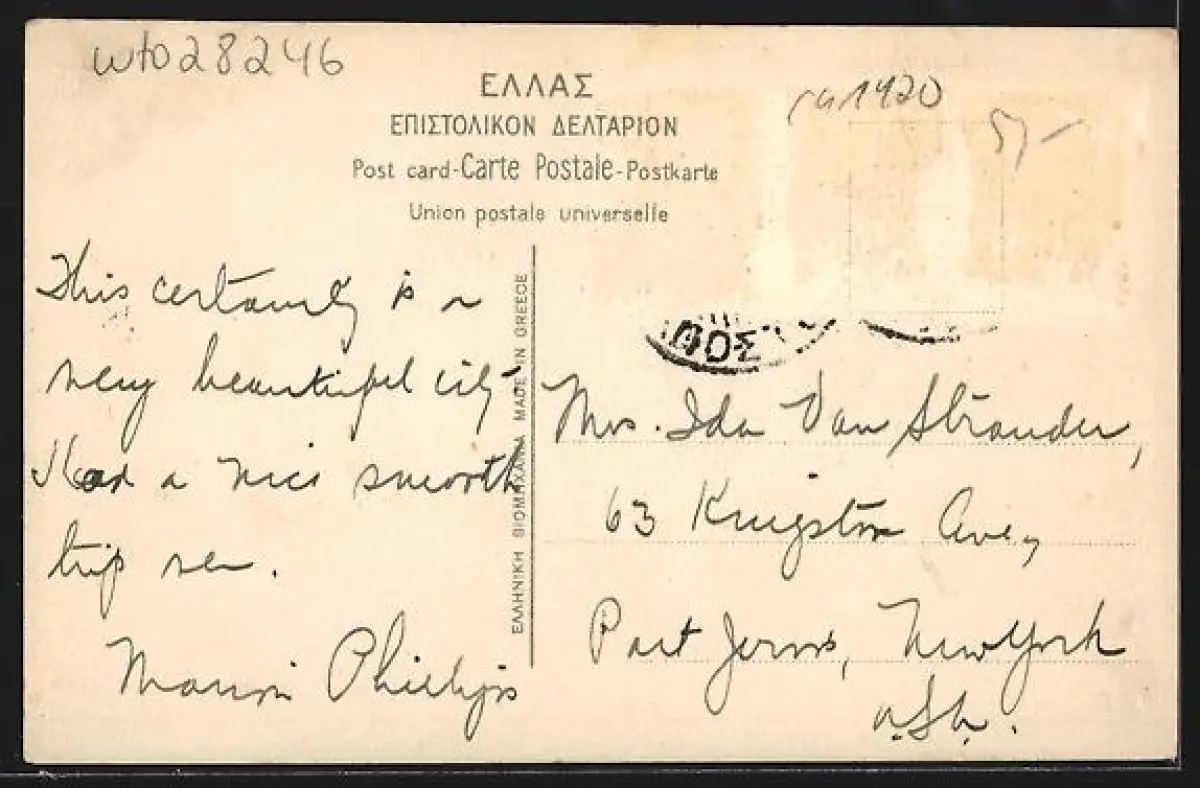 wto28246
ΕΛΛΑΣ
ΕΠΙΣΤΟΛΙΚΟΝ ΔΕΛΤΑΡΙΟΝ
Post card-Carte Postale-Postkarte
Union postale universelle
ca 1920
57-
ΠΟΣ
This certainly is a
very beautiful city
Had a nice smooth
trip
Marion Phillips
ΕΛΛΗΝΙΚΗ ΒΙΟΜΗΧΑΝΙΑ MADE IN GREECE
Mrs. Ida Van Strander,
63 Kingston Ave,
Port Jervis, New York
U.S.A.